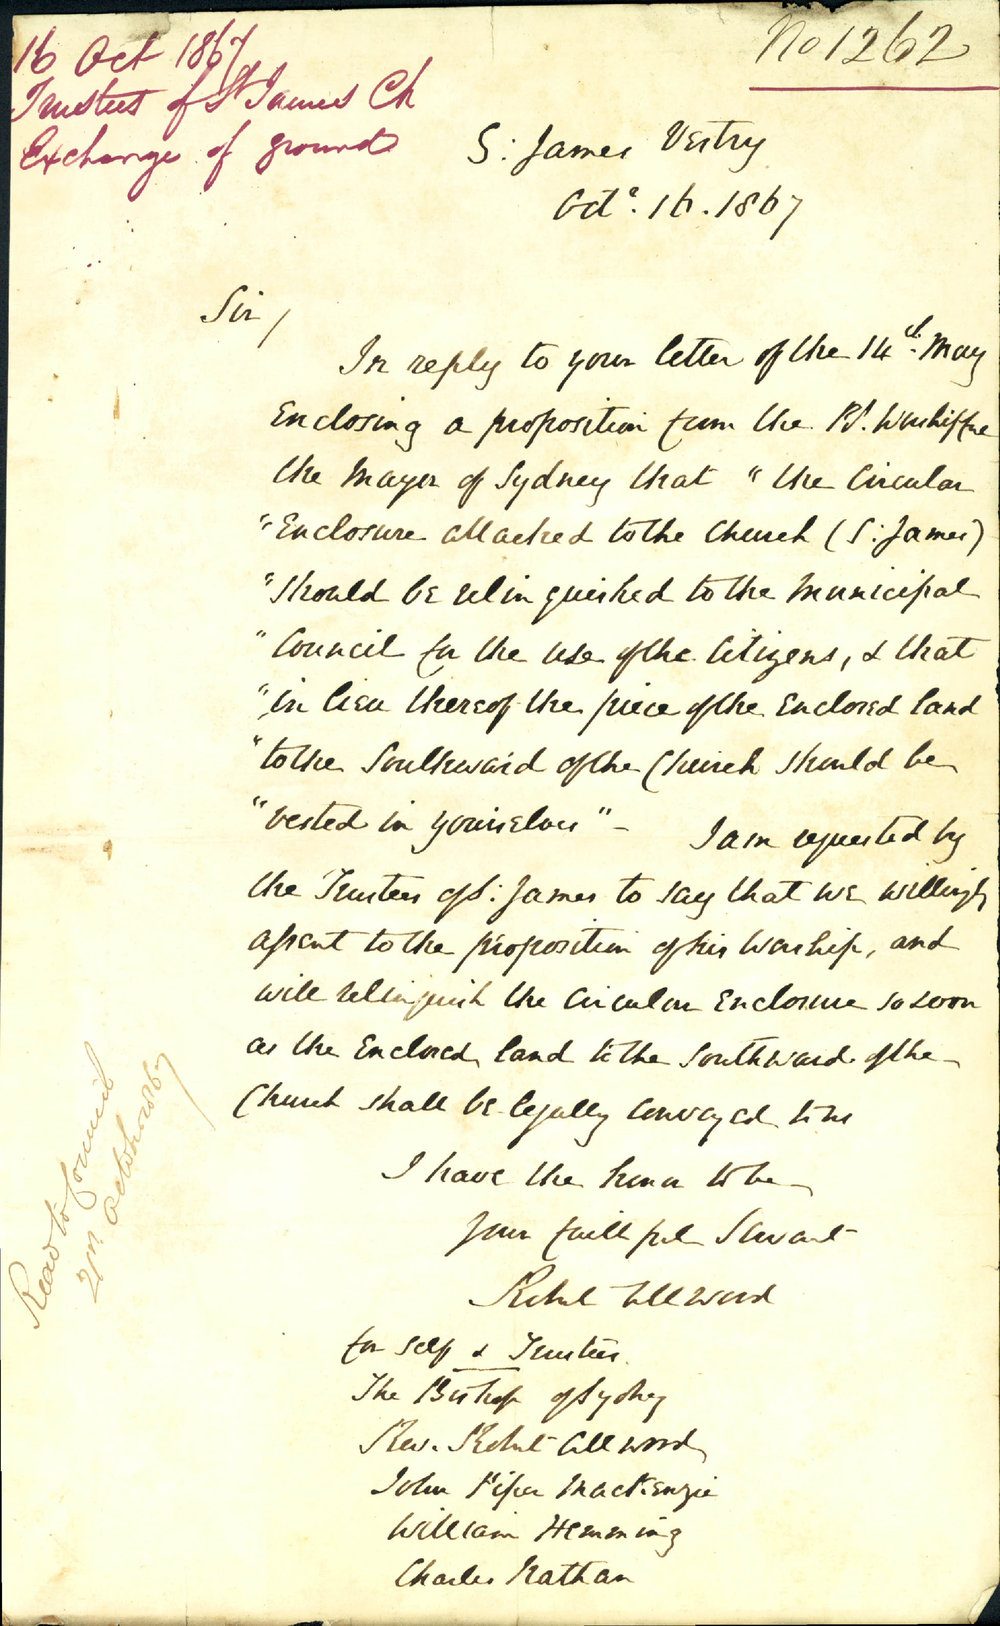 No 1262
16 Oct 1867
Trustees of St James Ch
Exchange of ground
S: James Vestry
Octr. 16. 1867
Sir,
In reply to your letter of the 14th. May
Enclosing a proposition from the Rt. Worshipful
the Mayor of Sydney that " the Circular
"Enclosure attached to the Church (S: James)
"should be relinquished to the Municipal
"Council for the use of the Citizens, & that
"in lieu thereof the piece of the Enclosed land
"to the Southward of the Church should be
"vested in yourselves" - I am requested by
the Trustees of S: James to say that we willingly
assent to the proposition of his Worship, and
will relinquish the Circular Enclosure so soon
as the Enclosed land to the Southward of the
Church shall be legally conveyed to us
I have the honor to be
Your faithful Servant
Robert Allwood
for self & Trustees.
The Bishop of Sydney
Rev. Robert Allwood
John Piper Mackenzie
William Hemming
Charles Nathan
Read to Council
21st October 67